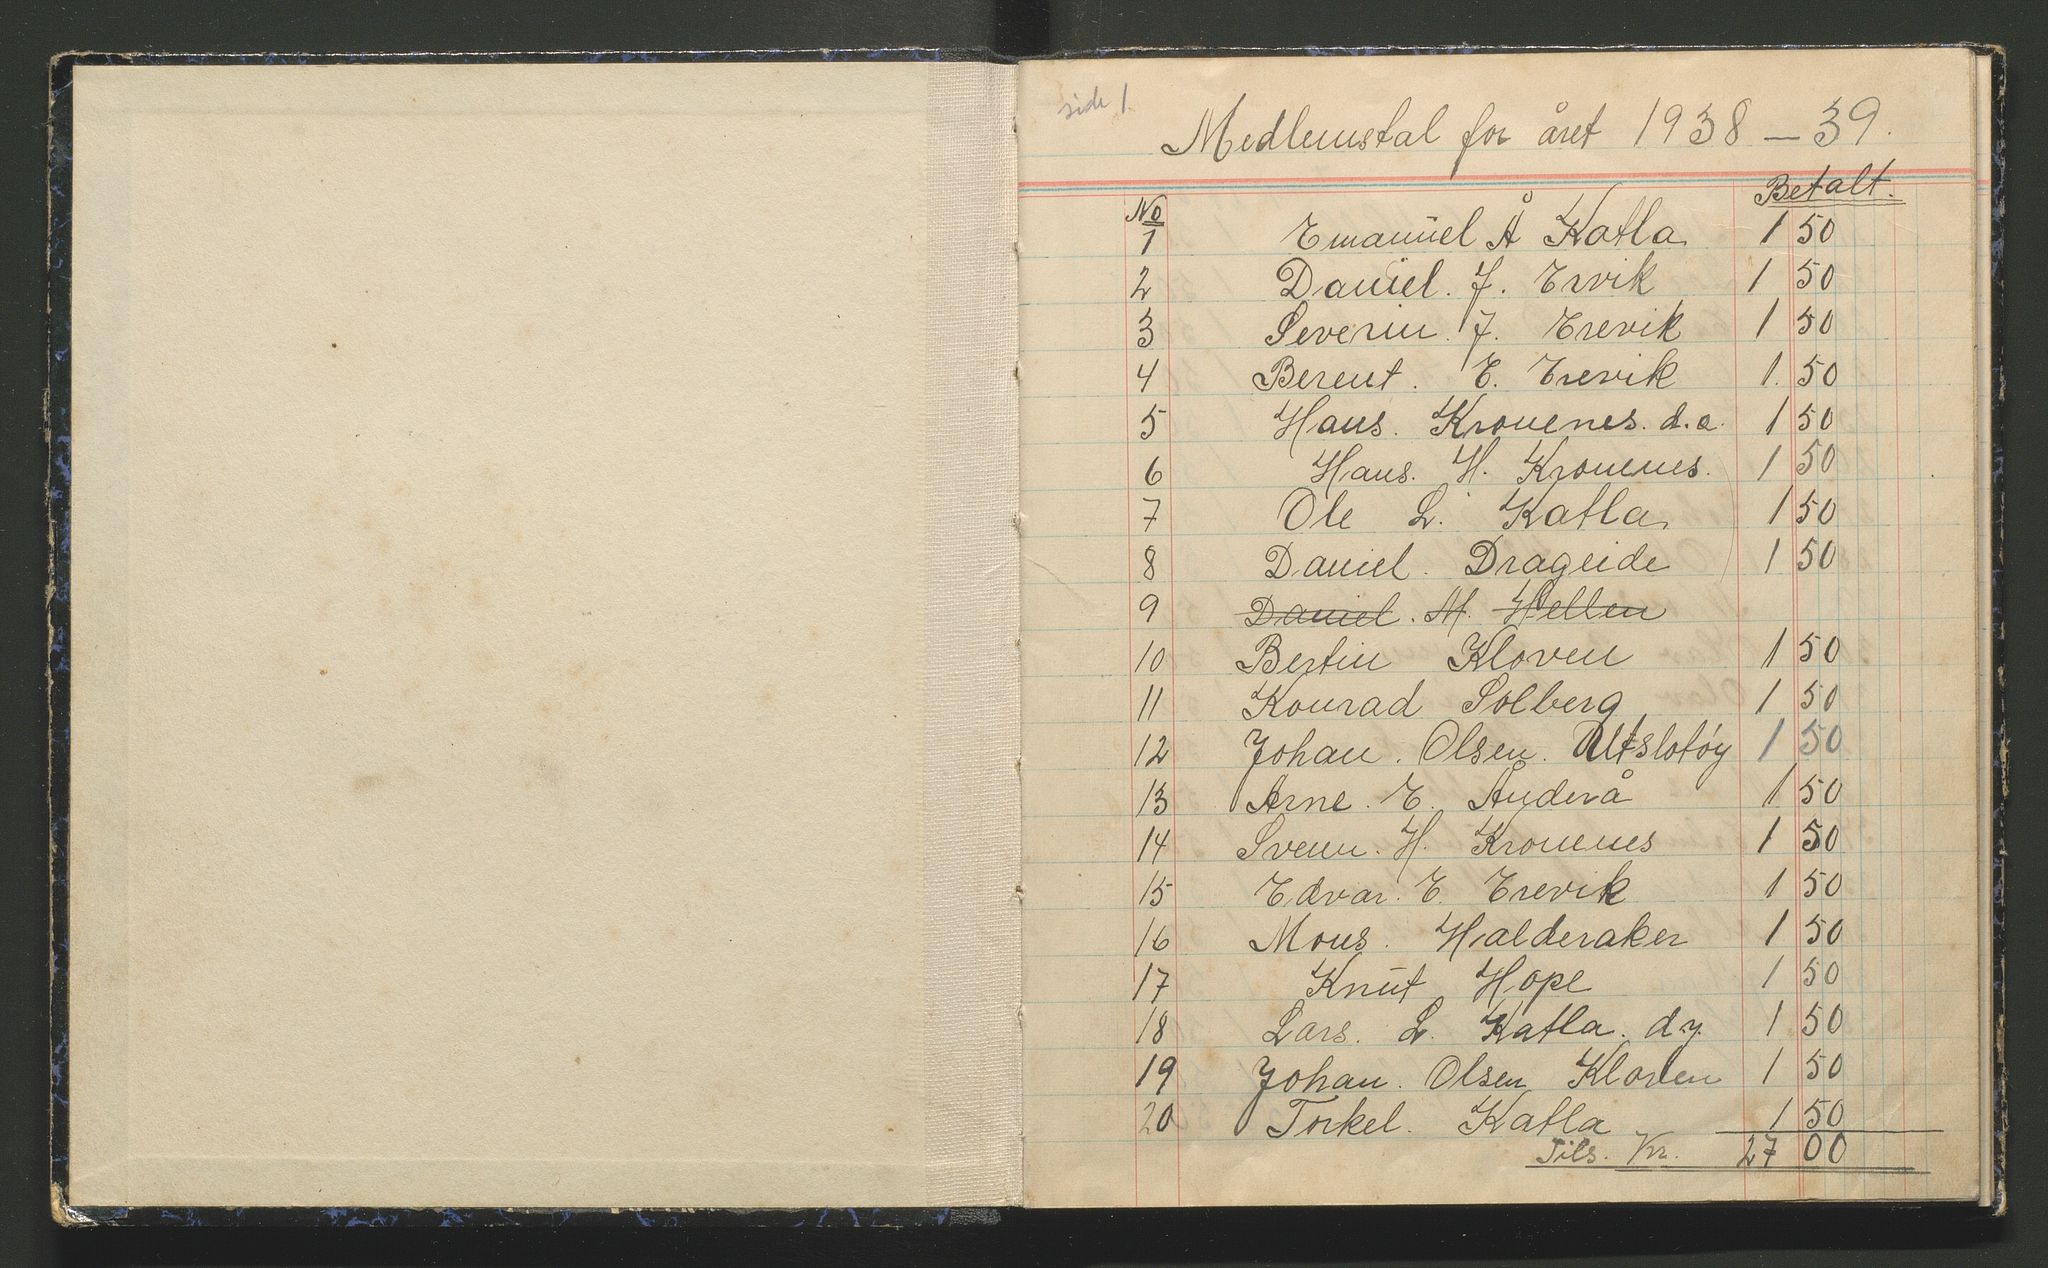 side 1
Medlemstal for året 1938 – 39.
Betalt.
No
1 Emanuel Å Katla 1 50
2 Daniel. J. Ervik 1 50
3 Severin. J. Erevik 1 50
4 Berent. E. Erevik 1. 50
5 Hans. Kronenes. d.e. 1 50
6 Hans. H. Kronenes. 1 50
7 Ole L. Katla 1 50
8 Daniel. Drageide 1 50
9 Daniel. M. Hellen
10 Bertin Kloven 1 50
11 Konrad Solberg 1 50
12 Johan. Olsen. Utsløtøy 1 50
13 Arne. E. Änderå 1 50
14 Svenn. H. Kronenes 1 50
15 Edvar. E. Erevik 1 50
16 Mons. Halderaker 1 50
17 Knut Hope 1 50
18 Lars. L. Katla. d.y. 1 50
19 Johan. Olsen Kloven 1 50
20 Torkel. Katla 1 50
Tils. Kr. 27 00